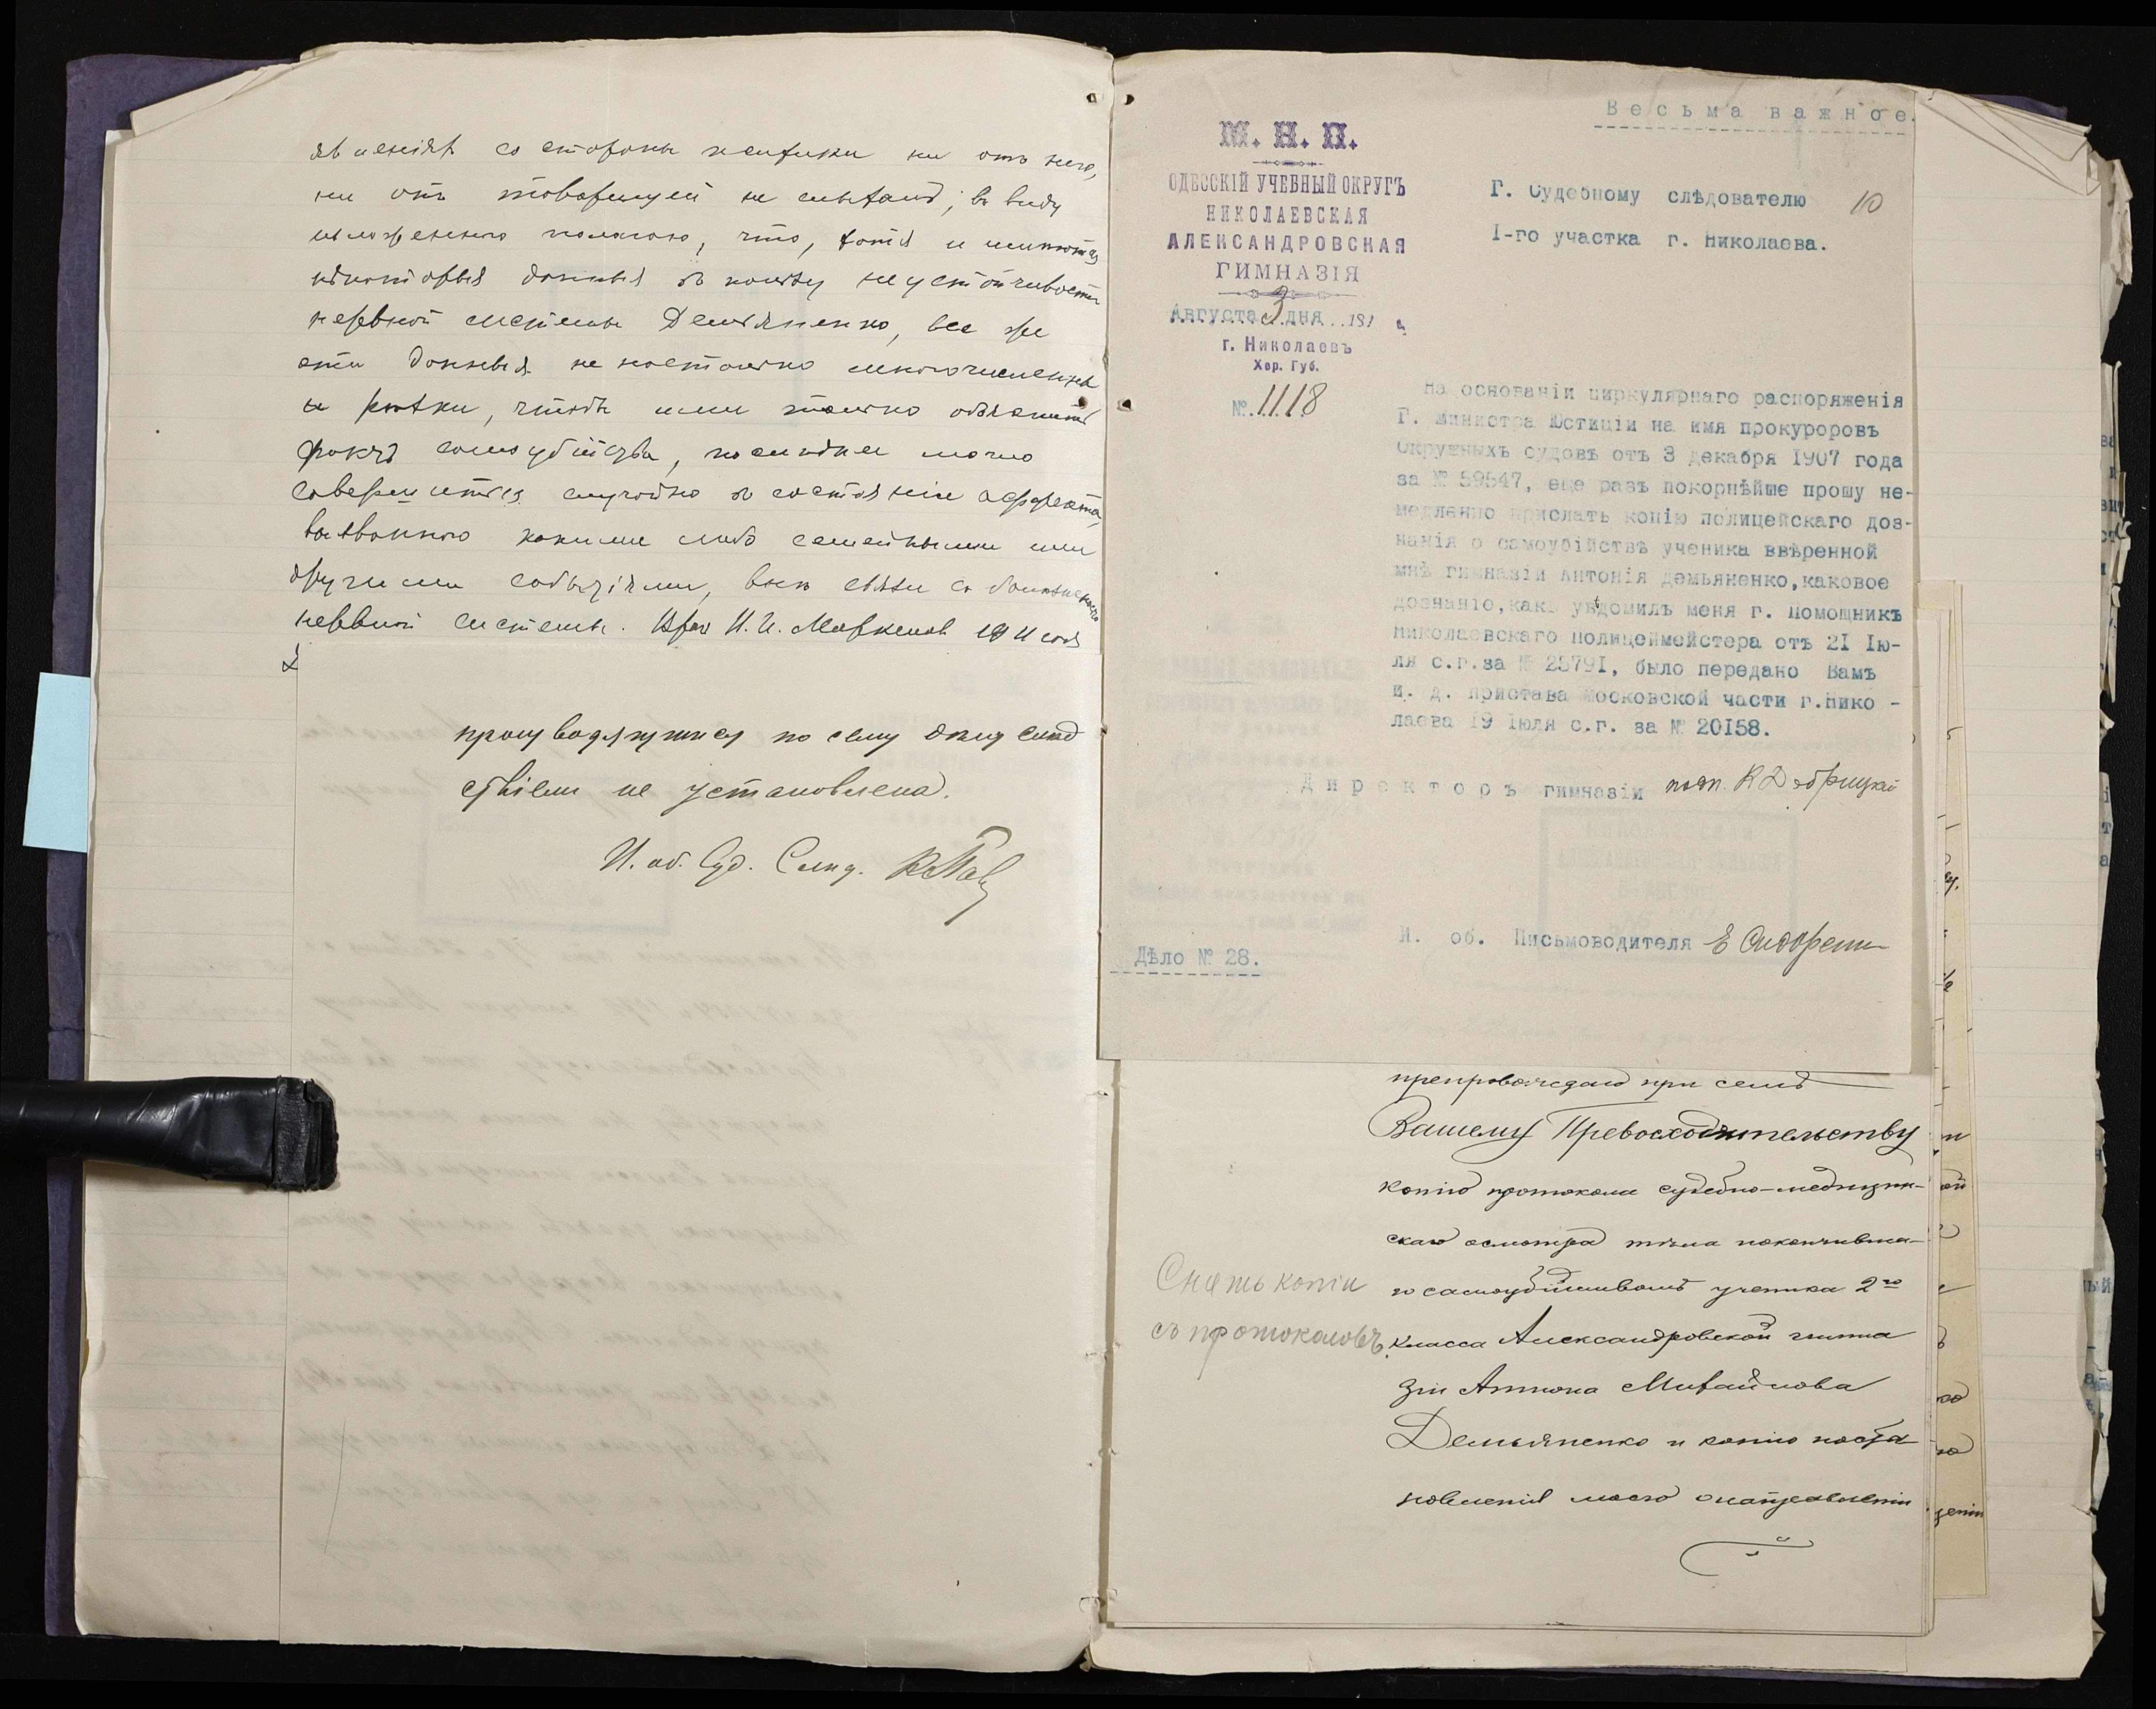 явленіях со стороны психики ни отъ него,
ни отъ товарищей не слыхалъ; въ виду
изложеннаго полагаю, что, хотя и имѣются
нѣкоторыя данныя въ пользу неустойчивости
нервной системы Демьяненко, все же
эти данныя не настолько многочисленны
и рѣзки, чтобъ ими только объяснить
фактъ самоубійства, послѣднее могло
совершиться случайно въ состояніи аффекта,
вызваннаго какими либо семейными или
другими событіями, внѣ связи съ болѣзненностью
нервной системы. Врач И. И. 1911 года
производящимся по сему дѣлу слѣд
ствіемъ не установлена.
И. об. Суд. Слѣд.
Весьма важное.
М. Н. П.
ОДЕССКІЙ УЧЕБНЫЙ ОКРУГЪ
НИКОЛАЕВСКАЯ
АЛЕКСАНДРОВСКАЯ
ГИМНАЗІЯ
Августа 3 дня 191
г. Николаевъ
Хер. Губ.
№ 1118
Г. Судебному слѣдователю 10
I-го участка г. Николаева.
На основаніи циркулярнаго распоряженія
Г. Министра Юстиціи на имя прокуроровъ
Окружныхъ судовъ отъ 3 декабря 1907 года
за № 59547, еще разъ покорнѣйше прошу не-
медленно прислать копію полицейскаго доз-
нанія о самоубійствѣ ученика ввѣренной
мнѣ гимназіи Антонія Демьяненко, каковое
дознаніе, какъ увѣдомилъ меня г. Помощникъ
Николаевскаго Полицеймейстера отъ 21 Ію-
ля с.г. за № 25791, было передано Вамъ
и. д. пристава Московской части г. Нико -
лаева 19 Іюля с.г. за № 20158.
Директоръ гимназіи подп. К Дзбрицкій
И. об. Письмоводителя Е Сидоренко
Дѣло № 28.
препровождаю при семъ
Вашему Превосходительству
копію протокола судебно-медицин-
скаго осмотра тѣла покончивша-
го самоубійствомъ ученика 2го
класса Александровской гимна
зіи Антона Михайлова
Демьяненко и копію поста
новленія моего о направленіи
Снять копіи
съ протоколовъ